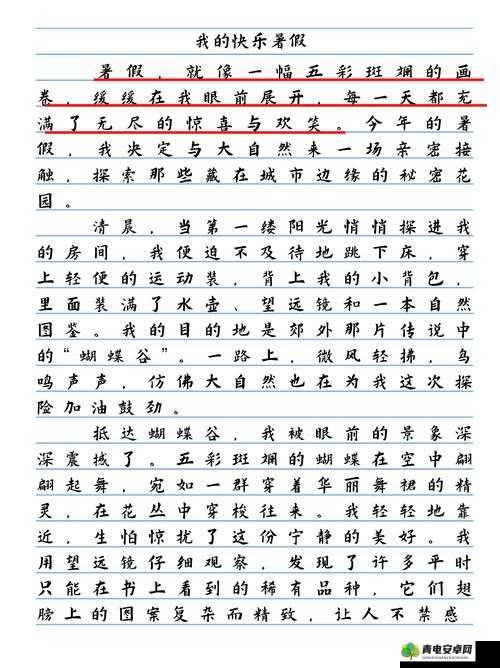 我的快乐暑假
暑假，就像一幅五彩斑斓的画
卷，缓缓在我眼前展开，每一天都充
满了无尽的惊喜与欢笑。今年的暑
假，我决定与大自然来一场亲密接
触，探索那些藏在城市边缘的秘密花
园。
清晨，当第一缕阳光悄悄探进我
的房间，我便迫不及待地跳下床，穿
上轻便的运动装，背上我的小背包，
里面装满了水壶、望远镜和一本自然
图鉴。我的目的地是郊外那片传说中
的“蝴蝶谷”。一路上，微风轻拂，鸟
鸣声声，仿佛大自然也在为我这次探
险加油鼓劲。
抵达蝴蝶谷，我被眼前的景象深
深震撼了。五彩斑斓的蝴蝶在空中翩
翩起舞，宛如一群穿着华丽舞裙的精
灵，在花丛中穿梭往来。我轻轻地靠
近，生怕惊扰了这份宁静的美好。我
用望远镜仔细观察，发现了许多平时
只能在书上看到的稀有品种，它们翅
膀上的图案复杂而精致，让人不禁感
青电安卓网